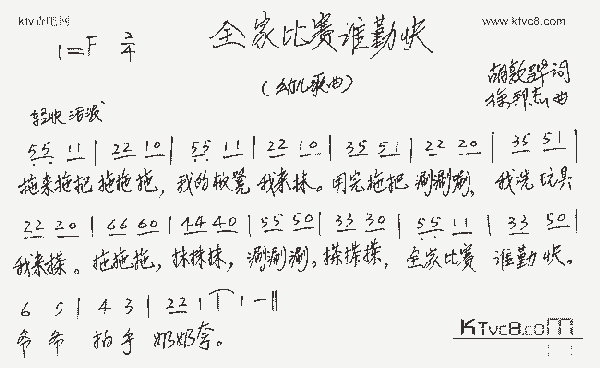 www.ktvc8.com
全家比赛谁勤快
1=F 2/4
(幼儿歌曲)
词
曲
轻快 活泼
55 11 | 22 10 | 55 11 | 22 10 | 35 51 | 22 20 | 35 51 |
拖来拖把 拖拖拖, 我的板凳 我来抹。用完拖把 涮涮涮, 我洗玩具
22 20 | 66 60 | 44 40 | 55 50 | 33 30 | 55 11 | 33 50 |
我来搽。拖拖拖, 抹抹抹, 涮涮涮, 搽搽搽, 全家比赛 谁勤快。
6 5 | 4 3 | 22 1 | 1 - ‖
爷爷 拍手 奶奶夸。
KTvc8.com